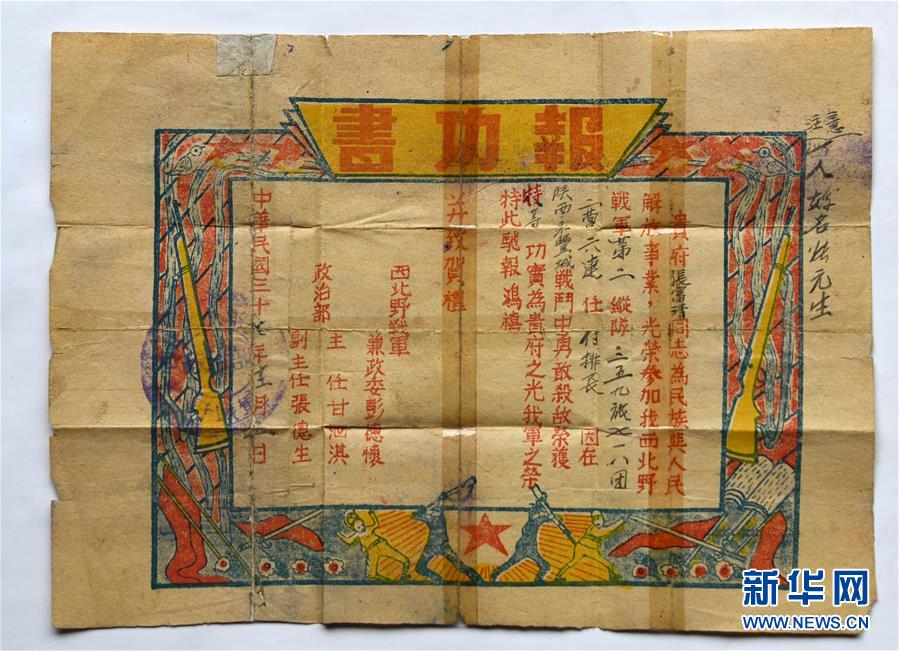 報功書
貴府張富清同志為民族與人民
解放事業，光榮參加我西北野
戰軍第二縱隊三五九旅七一八团
二营六連任付排長因在
陝西永豐城戰鬥中勇敢殺敵榮獲
特等功實為貴府之光我軍之榮
特此馳報鴻禧
并致賀禮
西北野戰軍
兼政委彭德懷
政治部
主任甘泗淇
副主任張德生
中華民國三十七年十二月日
注意
人姓名元生
新华网
WWW.NEWS.CN